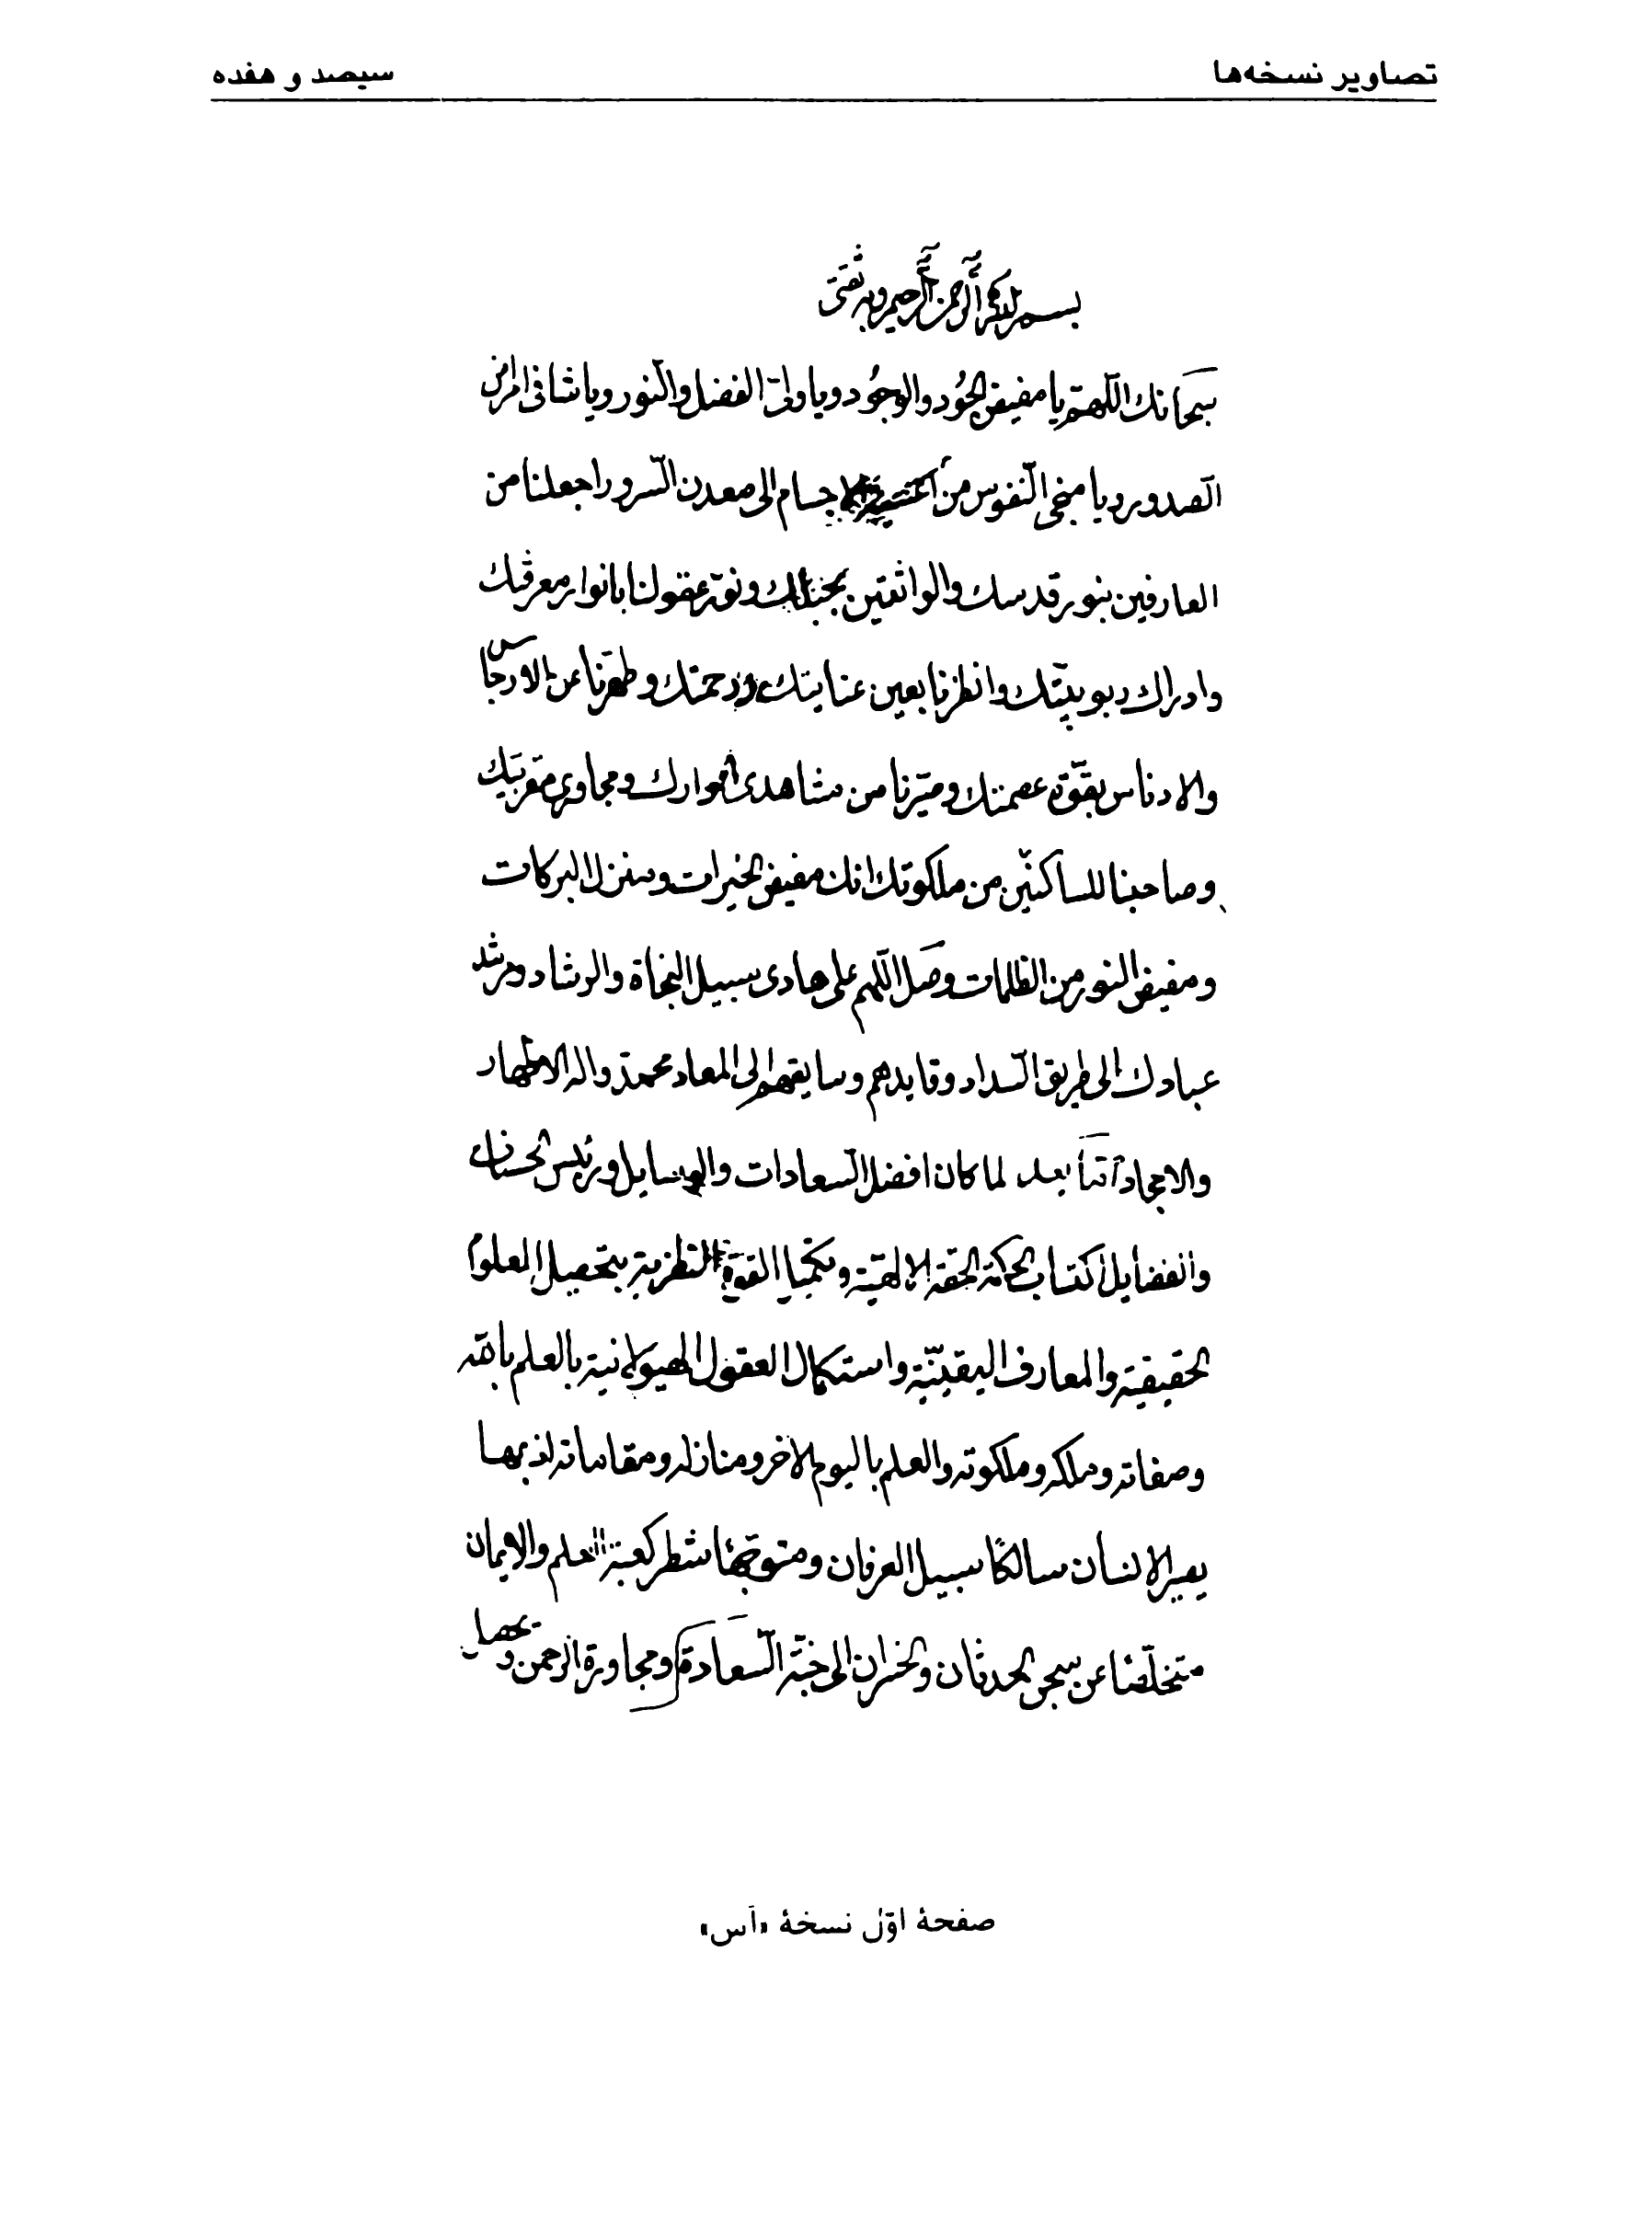 تصاویر نسخه‌ها
سیصد و هفده
بسم الله الرحمن الرحیم وبه ثقتی
سبحانك اللّهمّ یا مفیض الجُود والوجُود ویا ولیّ الفضل والنور ویا شافی امراض
الصّدور ویا منجی النّفوس من الاجسام الی معدن السّرور اجعلنا من
العارفین بنور قدسك والواثقین بجنابك ونوّر عقولنا بانوار معرفتك
وادراك ربوبیّتك وانظرنا بعین عنایتك ورحمتك وطهّرنا عن الارجاس
والادناس بقوّة عصمتك وصیّرنا من مشاهدی انوارك ومجاوری مقربیك
وصاحبنا للساكنین من ملكوتك انك مفیض الخیرات ومنزل البركات
ومفیض النور من الظلمات وصَلّ اللّهم علی هادی سبیل النجاة والرشاد ومرشد
عبادك الی طریق السّداد وقایدهم وسایقهم الی المعاد محمد واله الاطهار
والامجاد امّا بعد لما كان افضل السّعادات والوسایل ورئیس الحسنات
والفضایل اكتساب الحكمة الحقة الالهیّة وتكمیل القوّة النظریة بتحصیل العلوم
الحقیقیة والمعارف الیقینیّة واستكمال العقول الهیولانیة بالعلم بالله
وصفاته وملكه وملكوته والعلم بالیوم الاخر ومنازله ومقاماته اذ بهما
یصیر الانسان سالكًا سبیل العرفان ومتوجّهًا شطر كعبة العلم والایمان
متخلّصًا عن سجن الحدثان والخسران الی جنّة السّعادة ومجاورة الرحمن وبهما
صفحهٔ اوّل نسخهٔ «آس»